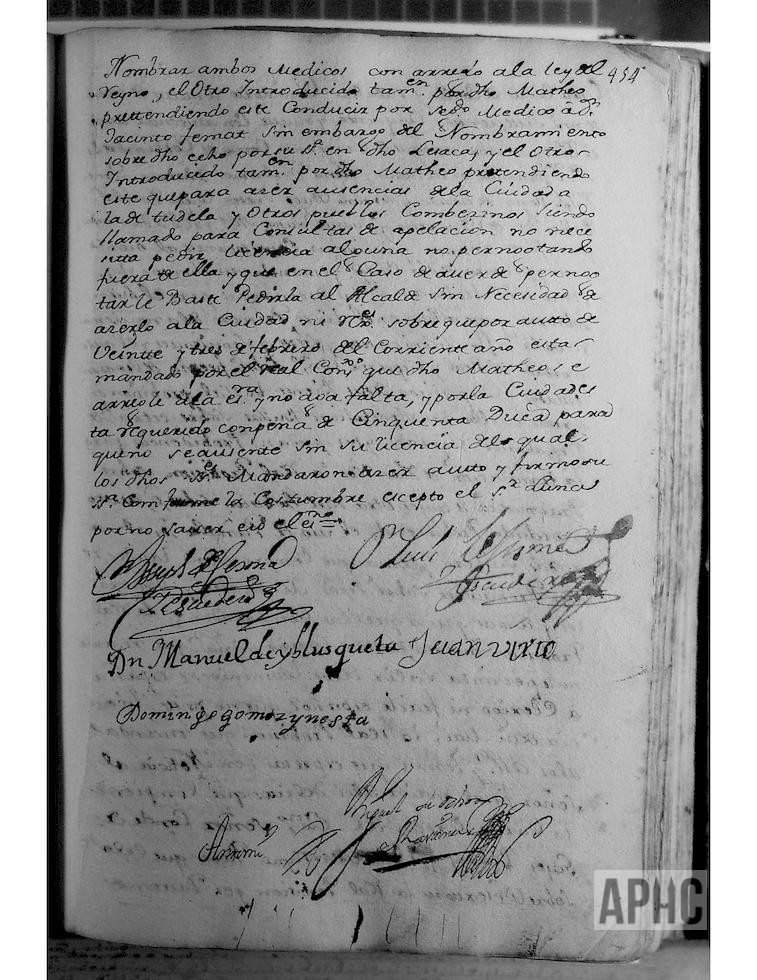 Nombrar ambos Medicos con arreno a la ley del 454
Reyno, el Otro Introducido tam.en por dho Matheo
prettendiendo este Conducir por seg.do Medico a D.n
Jacinto femat Sin embargo del Nombramiento
sobre dho echo por su S.a en dho Lesaca, y el Otro
Introducido tam.en por dho Matheo pretendiendo
este que para azer ausencias de la Ciudad a
la de tudela y Otros pueblos Combezinos siendo
llamado para Consultas de apelacion no nece
sitta pedir licencia alguna no pernoctando
fuera de ella y que en el Caso de aver de pernoc
tar le Baste Pedirla al Alcalde Sin Necesidad de
azerlo a la Ciudad ni sobre que por autto de
Veinte y tres de febrero del Corriente año esta
mandado por el Real Cons.o que dho Matheo se
arregle a la es.ra y no aga falta, y por la Ciudad es
ta requerido con pena de Cinquenta Duc.s para
que no se ausente Sin su licencia de lo qual
los dhos S.res Mandaron azer autto y firmo su
S.a Comforme la Costumbre ecepto el S.r
por no saver eio el es.no =
D.n Joseph de Verona D.n Luis
y Escudero
Dn Manuel de yblusqueta Juan virto
Domingo gomez ynesta
Miguel
Antemi
APHC